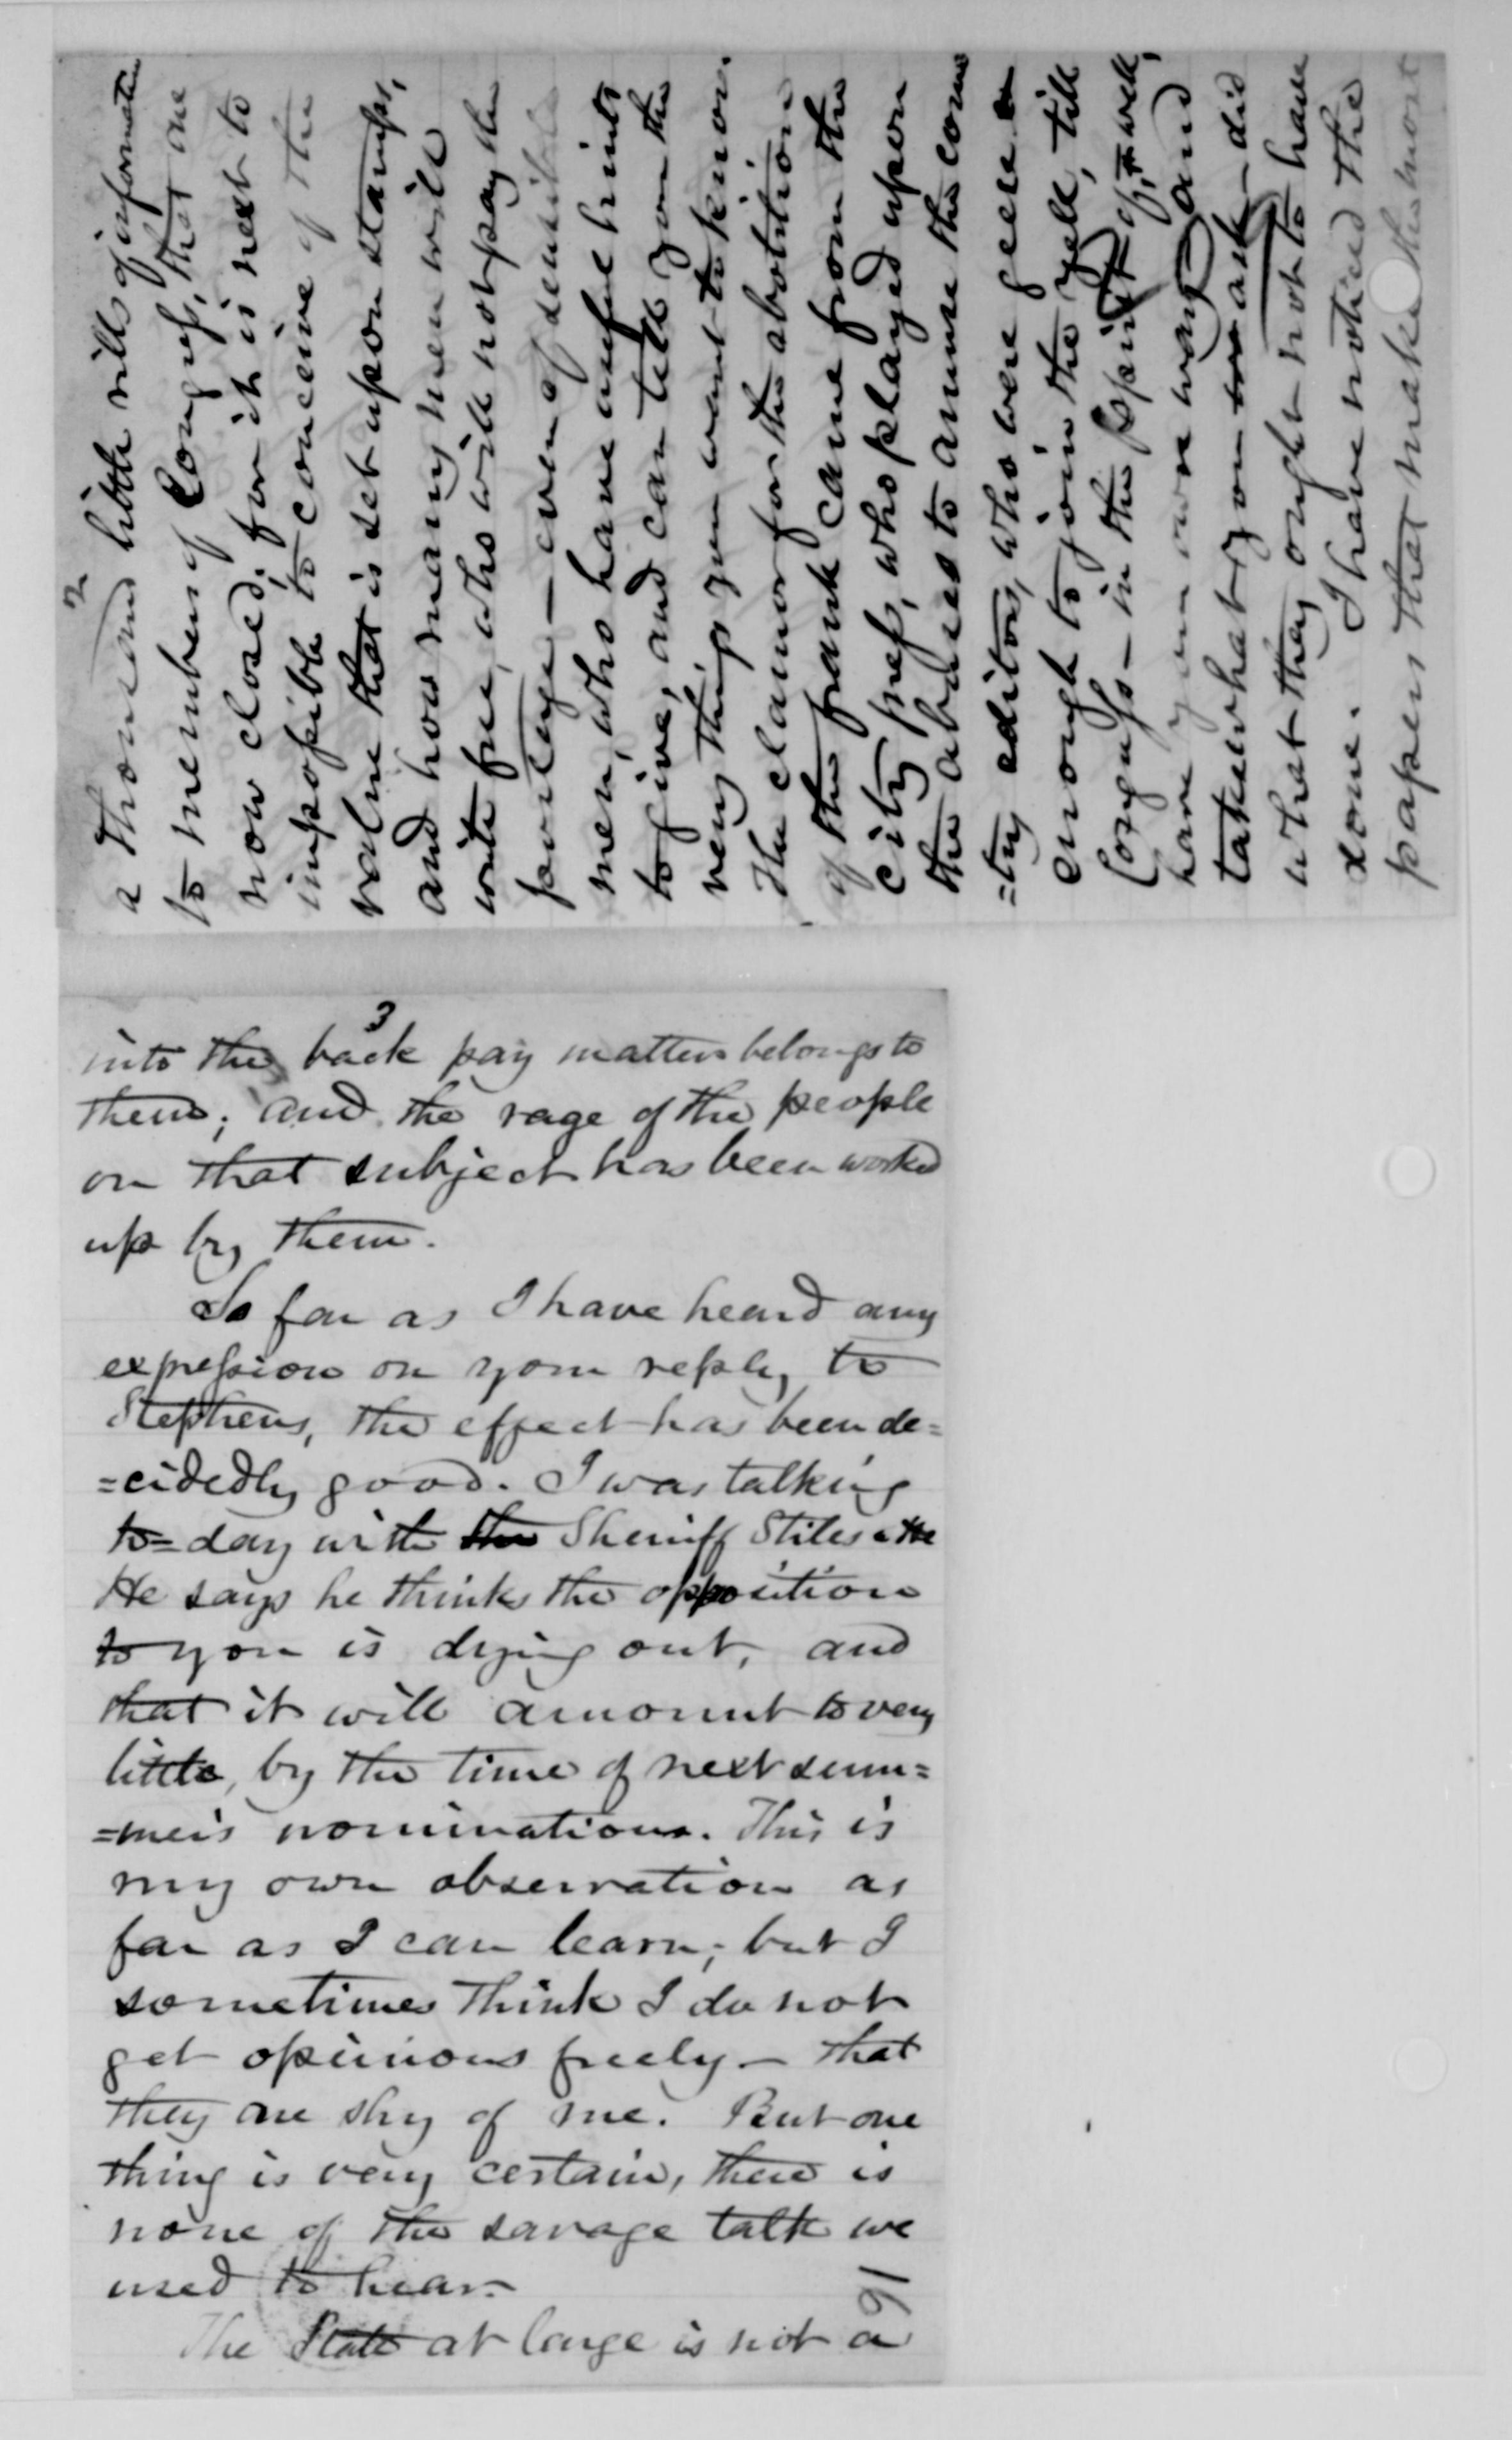 2
a thousand little rills of information
to members of Congress, that are
now closed; for it is next to
impossible to conceive of the
value that is set upon stamps,
and how many men will
write free, who will not pay the
postage — even of sensible
men, who have useful hints
to give, and can tell you the
very things you want to know.
The clamor for the abolition
of the frank came from the
city press, who played upon
the abuses to amuse the coun
=try editors, who were geese
enough to join the yell, till
Congress — in the spirit of, "well,
have your own way" and
taken what you ask — did
what they ought not to have
done. I have noticed the
papers that make the most
3
into the back pay matters belongs to
them; and the rage of the people
on that subject has been worked
up by them.
So far as I have heard any
expression on your reply to
Stephens, the effect has been de=
=cidedly good. I was talking
to=day with the Sheriff Stiles
He says he thinks the opposition
to you is dying out, and
that it will amount to very
little, by the time of next sum=
=mer's nominations. This is
my own observation as
far as I can learn; but I
sometimes think I do not
get opinions freely — that
they are shy of me. But one
thing is very certain, there is
none of the savage talk we
used to hear.
The State at large is not a
91